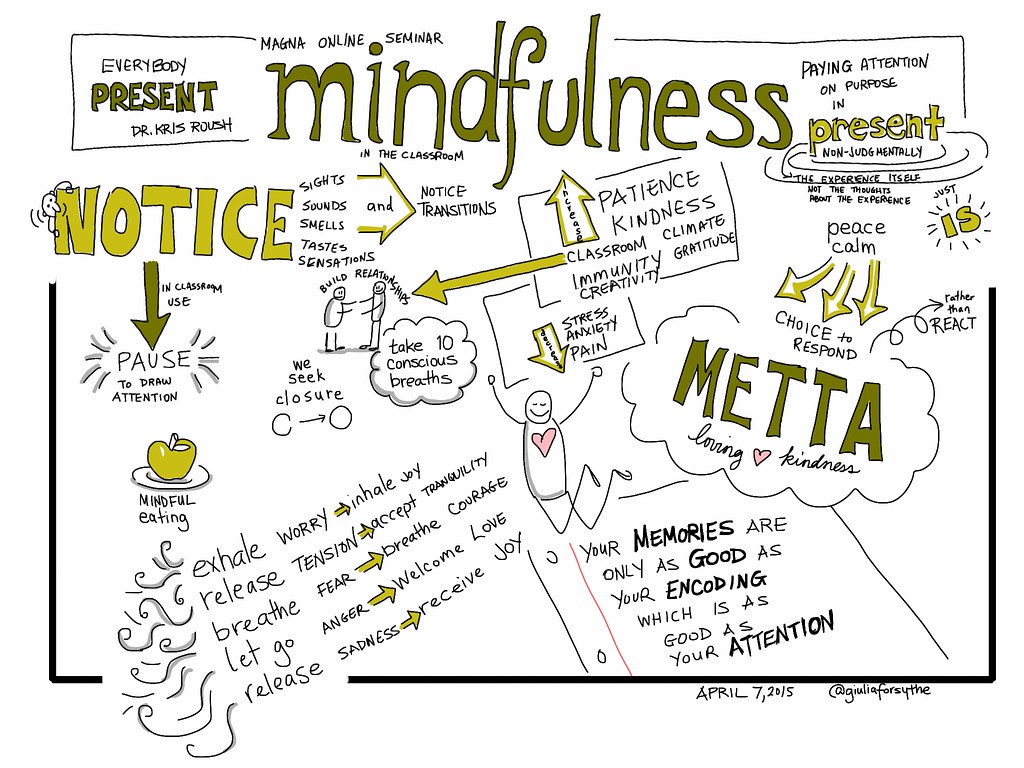 MAGNA ONLINE SEMINAR
mindfulness
IN THE CLASSROOM
EVERYBODY
PRESENT
DR. KRIS ROUSH
PAYING ATTENTION
ON PURPOSE
IN
present
NON-JUDGMENTALLY
THE EXPERIENCE ITSELF
NOT THE THOUGHTS
ABOUT THE EXPERIENCE
JUST
IS
NOTICE
SIGHTS
SOUNDS
SMELLS
TASTES
SENSATIONS
and
NOTICE
TRANSITIONS
increase
PATIENCE
KINDNESS
CLASSROOM CLIMATE
IMMUNITY GRATITUDE
CREATIVITY
BUILD RELATIONSHIPS
STRESS
ANXIETY
PAIN
peace
calm
CHOICE to
RESPOND
rather
than
REACT
IN CLASSROOM
USE
PAUSE
TO DRAW
ATTENTION
take 10
conscious
breaths
we
seek
closure
METTA
loving kindness
MINDFUL
eating
exhale WORRY inhale JOY
release TENSION accept TRANQUILITY
breathe FEAR breathe COURAGE
let go ANGER Welcome LOVE
release SADNESS receive JOY
YOUR MEMORIES ARE
ONLY AS GOOD AS
YOUR ENCODING
WHICH IS AS
GOOD AS
YOUR ATTENTION
APRIL 7, 2015 @giuliaforsythe